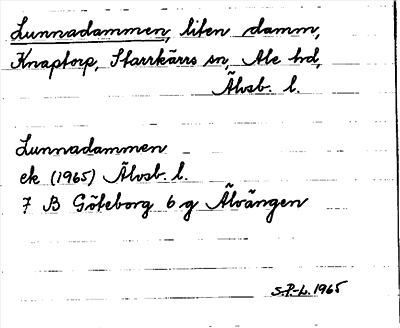 Lunnadammen, liten damm,
Knaptorp, Starrkärrs sn, Ale hd,
Älvsb. l.
Lunnadammen
ek (1965) Älvsb. l.
7 B Göteborg 6 g Älvängen
S.P.-L. 1965